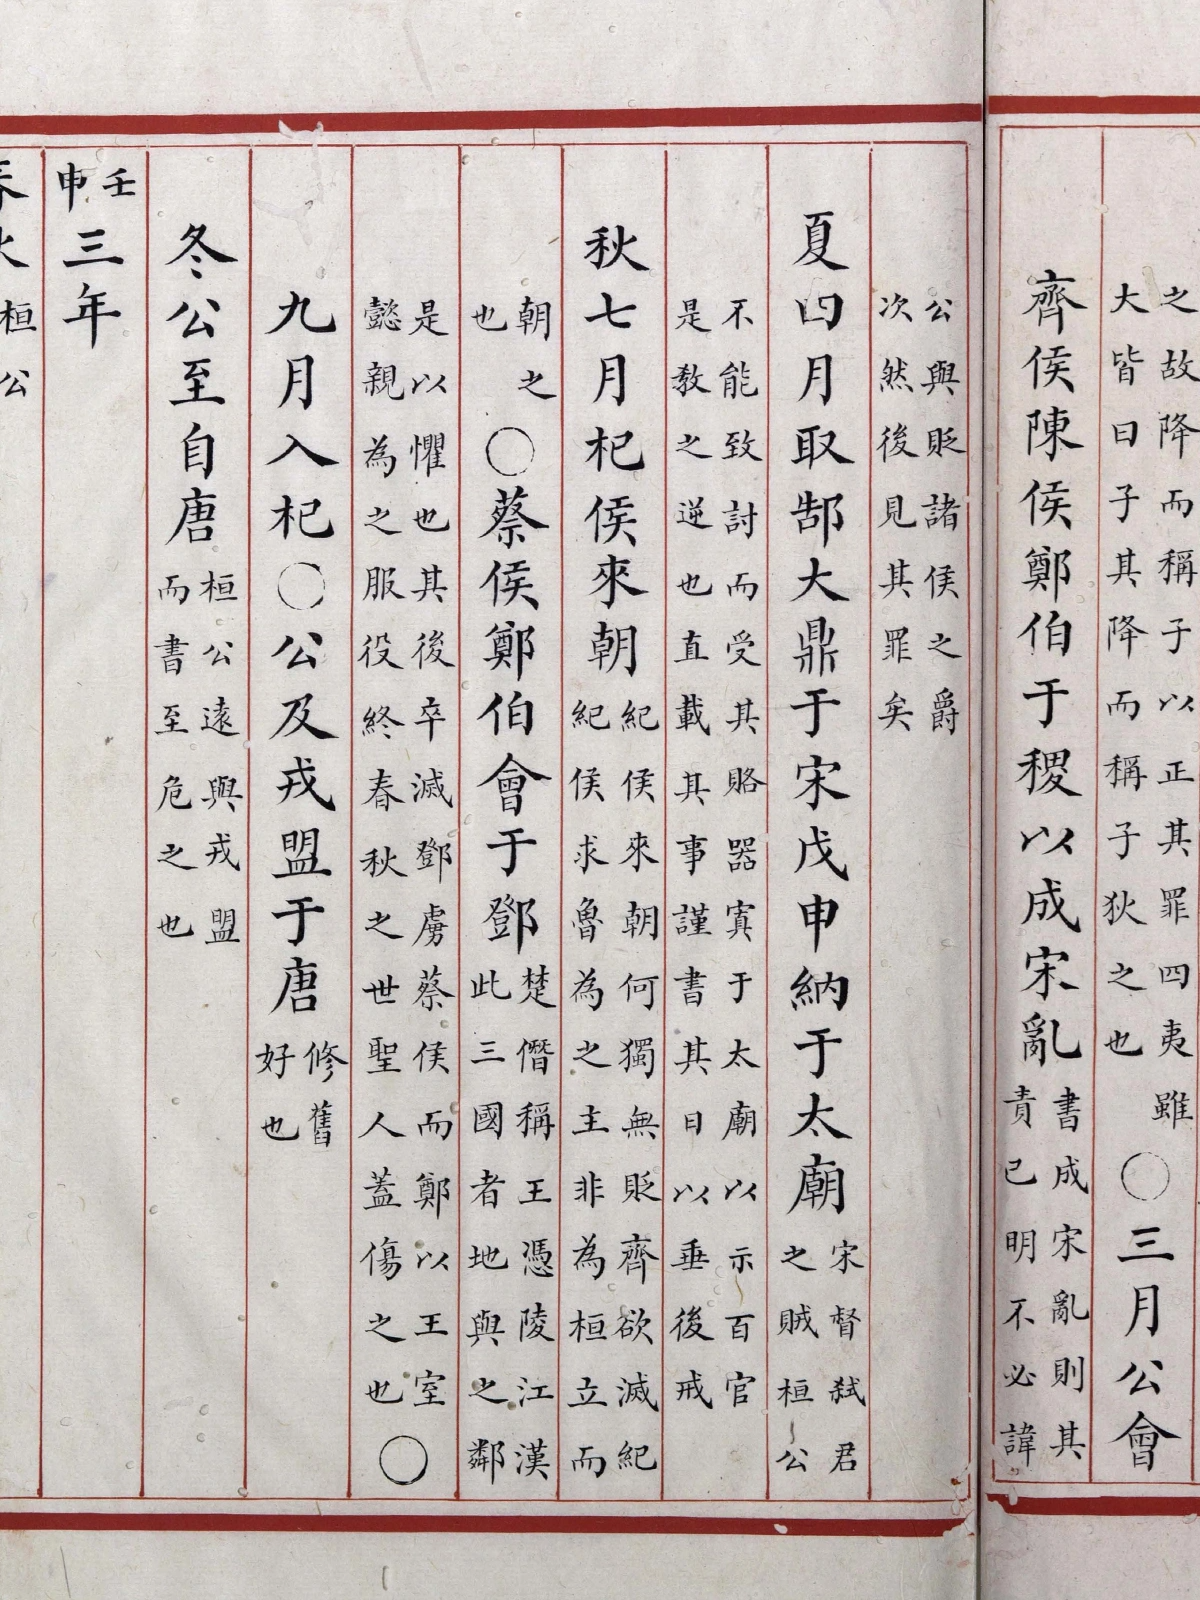 之故降而稱子以正其罪四夷雖
大皆曰子其降而稱子狄之也
○三月公會
齊侯陳侯鄭伯于稷以成宋亂
書成宋亂則其
責已明不必諱
公與貶諸侯之爵
次然後見其罪矣
夏四月取郜大鼎于宋戊申納于太廟
宋督弑君
之賊桓公
不能致討而受其賂器寘于太廟以示百官
是教之逆也直載其事謹書其日以垂後戒
秋七月杞侯來朝
紀侯來朝何獨無貶齊欲滅紀
紀侯求魯為之主非為桓立而
朝之
也
○蔡侯鄭伯會于鄧
楚僭稱王憑陵江漢
此三國者地與之鄰
是以懼也其後卒滅鄧虜蔡侯而鄭以王室
懿親為之服役終春秋之世聖人蓋傷之也
○
九月入杞○公及戎盟于唐
修舊
好也
冬公至自唐
桓公遠與戎盟
而書至危之也
壬
申
三年
桓公